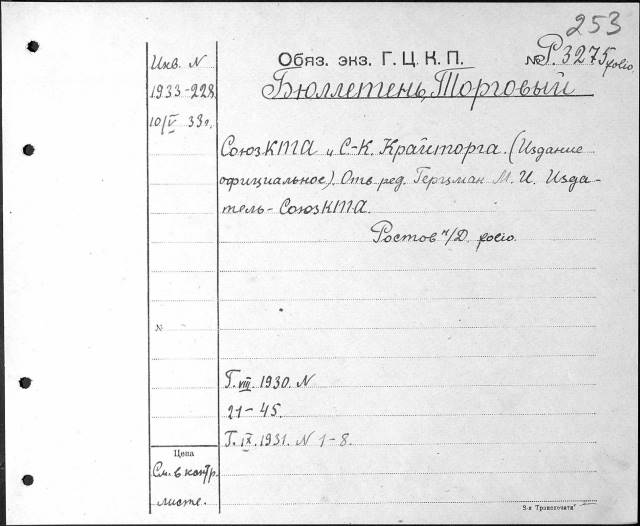 253
Инв. N
1933-228
10/V 33г.
Обяз. экз. Г.Ц.К.П.
№ Р.3275 folio
Бюллетень, Торговый
СоюзКТА и С-К. Крайторга. (Издание
официальное). Отв. ред. Герцман М. И. Изда-
тель - СоюзКТА.
Ростов н/Д. folio.
№
Г. VIII. 1930. N
21-45.
Г. IX. 1931. N 1-8.
Цена
См. в контр.
листе.